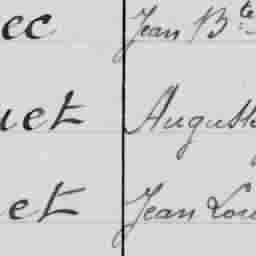 ec Jean Bte
uet Auguste
et Jean Lou